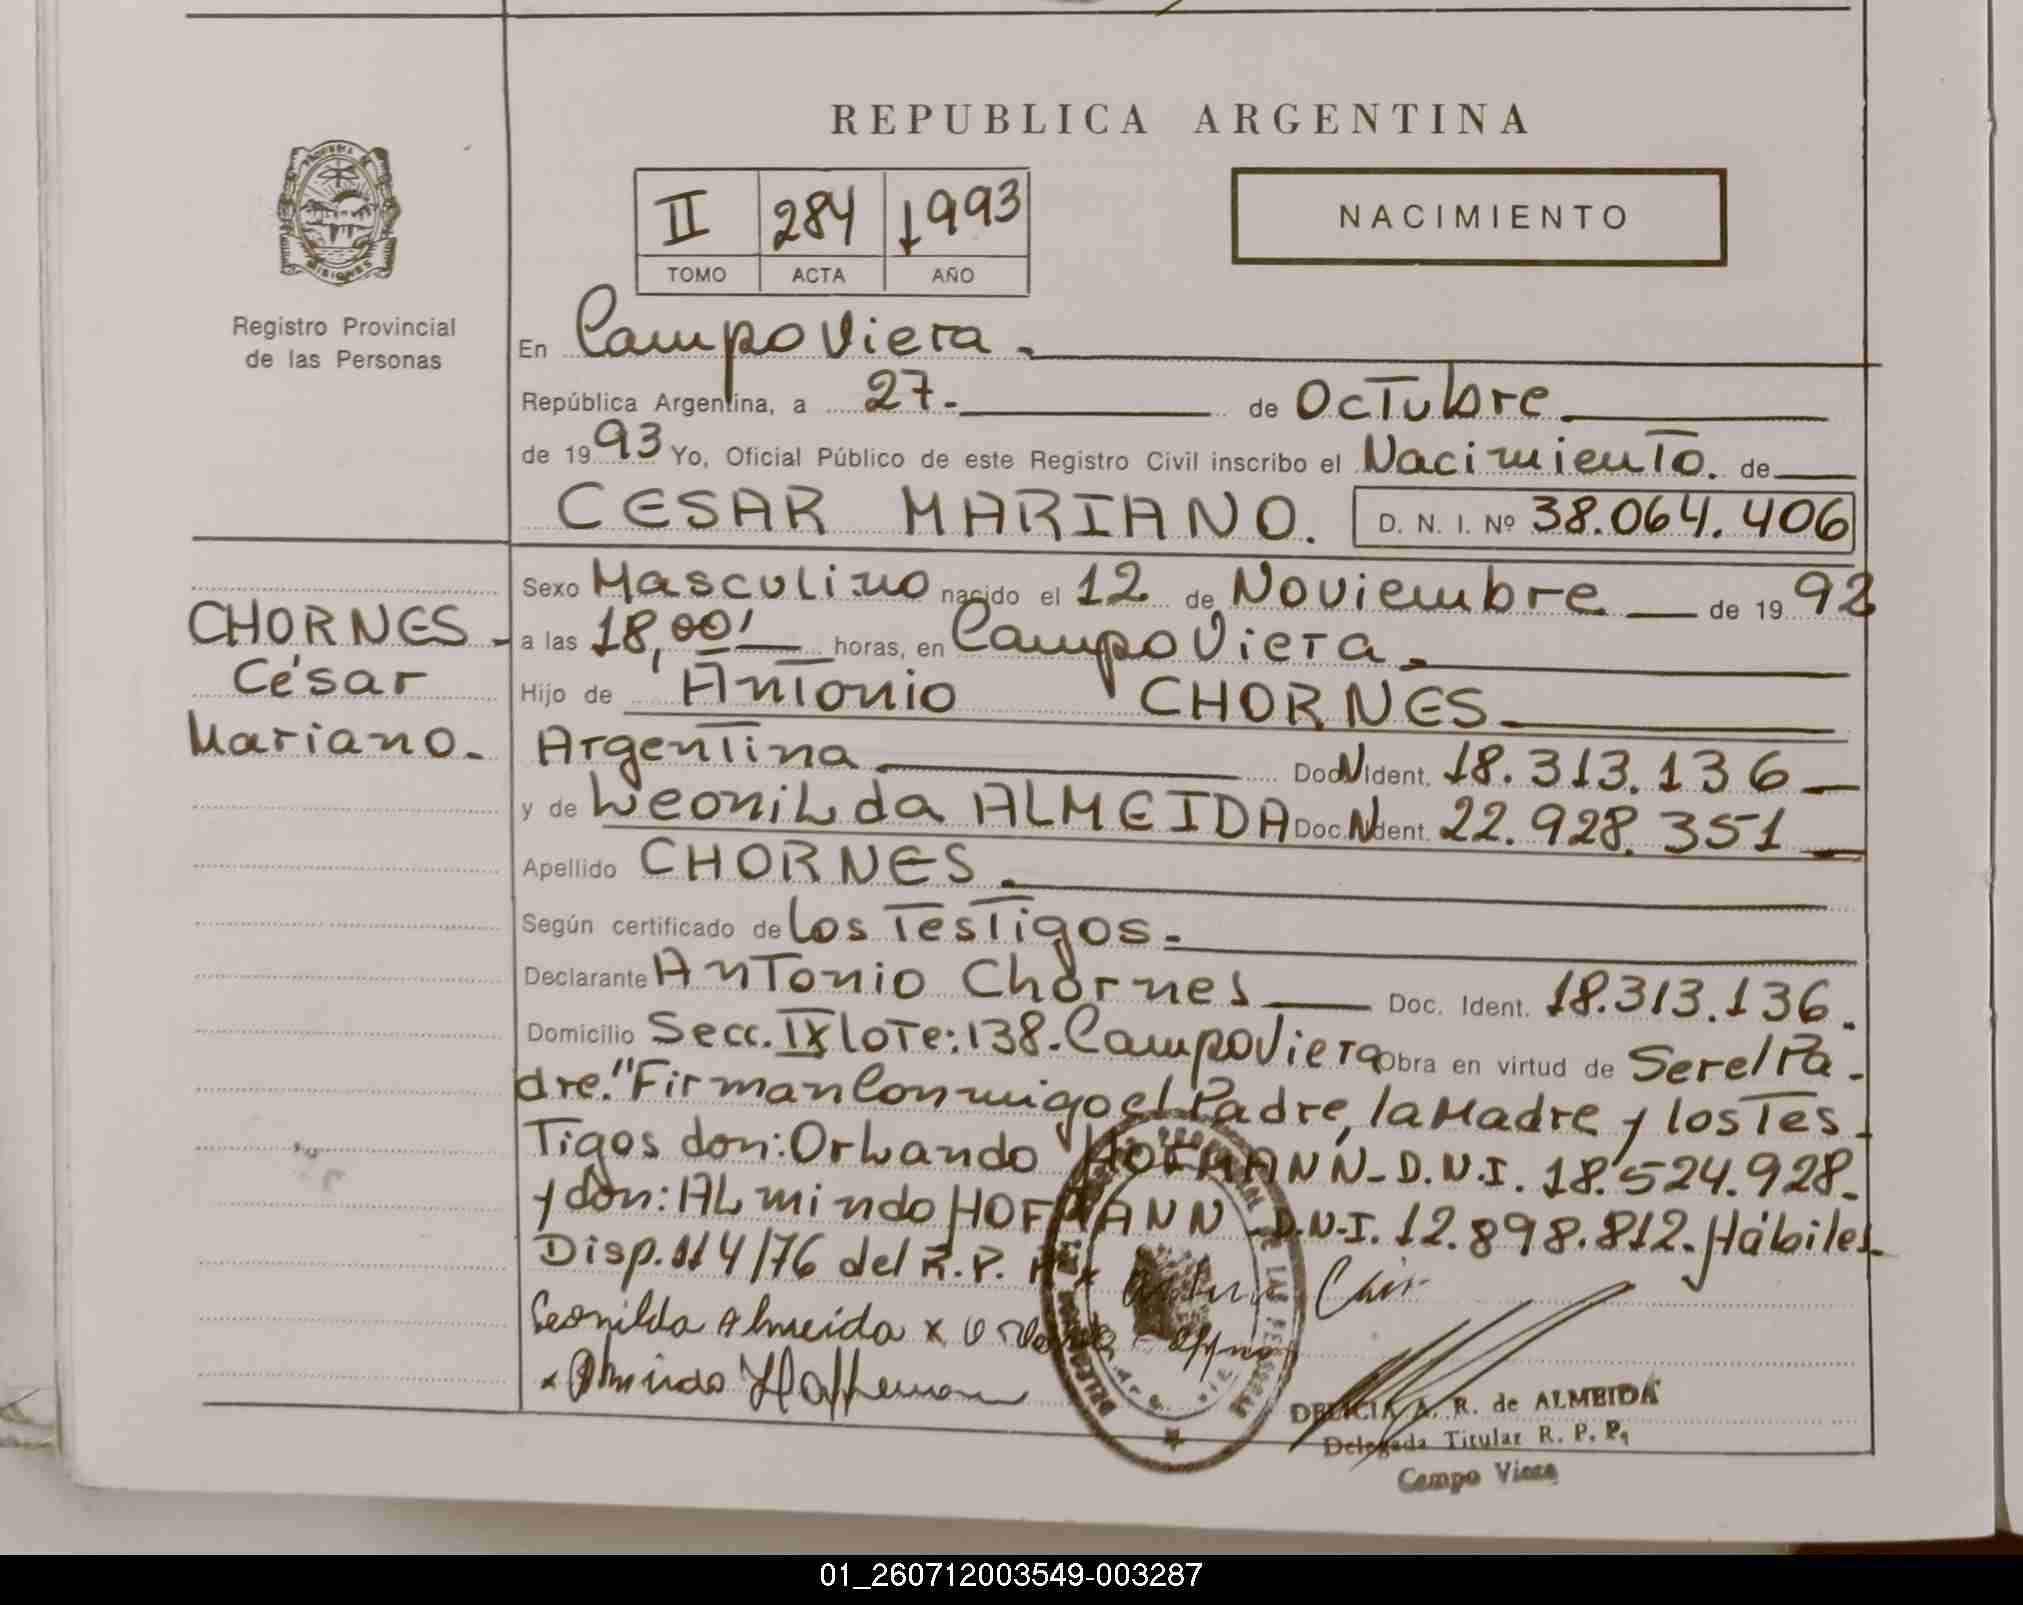 REPUBLICA ARGENTINA
II 284 1993
TOMO ACTA AÑO
NACIMIENTO
Registro Provincial
de las Personas
En Campo Viera.
República Argentina, a 27. de Octubre
de 1993 Yo, Oficial Público de este Registro Civil inscribo el Nacimiento. de
CESAR MARIANO. D. N. I. Nº 38.064.406
CHORNES
César
Mariano.
Sexo Masculino nacido el 12 de Noviembre de 1992
a las 18,00' horas, en Campo Viera.
Hijo de Antonio CHORNES
Argentina Doc. N Ident. 18.313.136
y de Leonilda ALMEIDA Doc. N Ident. 22.928.351
Apellido CHORNES.
Según certificado de los Testigos.
Declarante Antonio Chornes Doc. Ident. 18.313.136.
Domicilio Secc. IX lote: 138. Campo Viera Obra en virtud de Ser el Pa
dre." Firman Conmigo el Padre, la Madre y los Tes
Tigos don: Orlando HOFMANN - D.N.I. 18.524.928.
y don: ALmindo HOFMANN - D.N.I. 12.898.812. Hábiles
Disp. 114/76 del R.P.
Leonilda Almeida x
x Almindo
DELICIA A. R. de ALMEIDA
Delegada Titular R. P. P.
Campo Viera
01_260712003549-003287